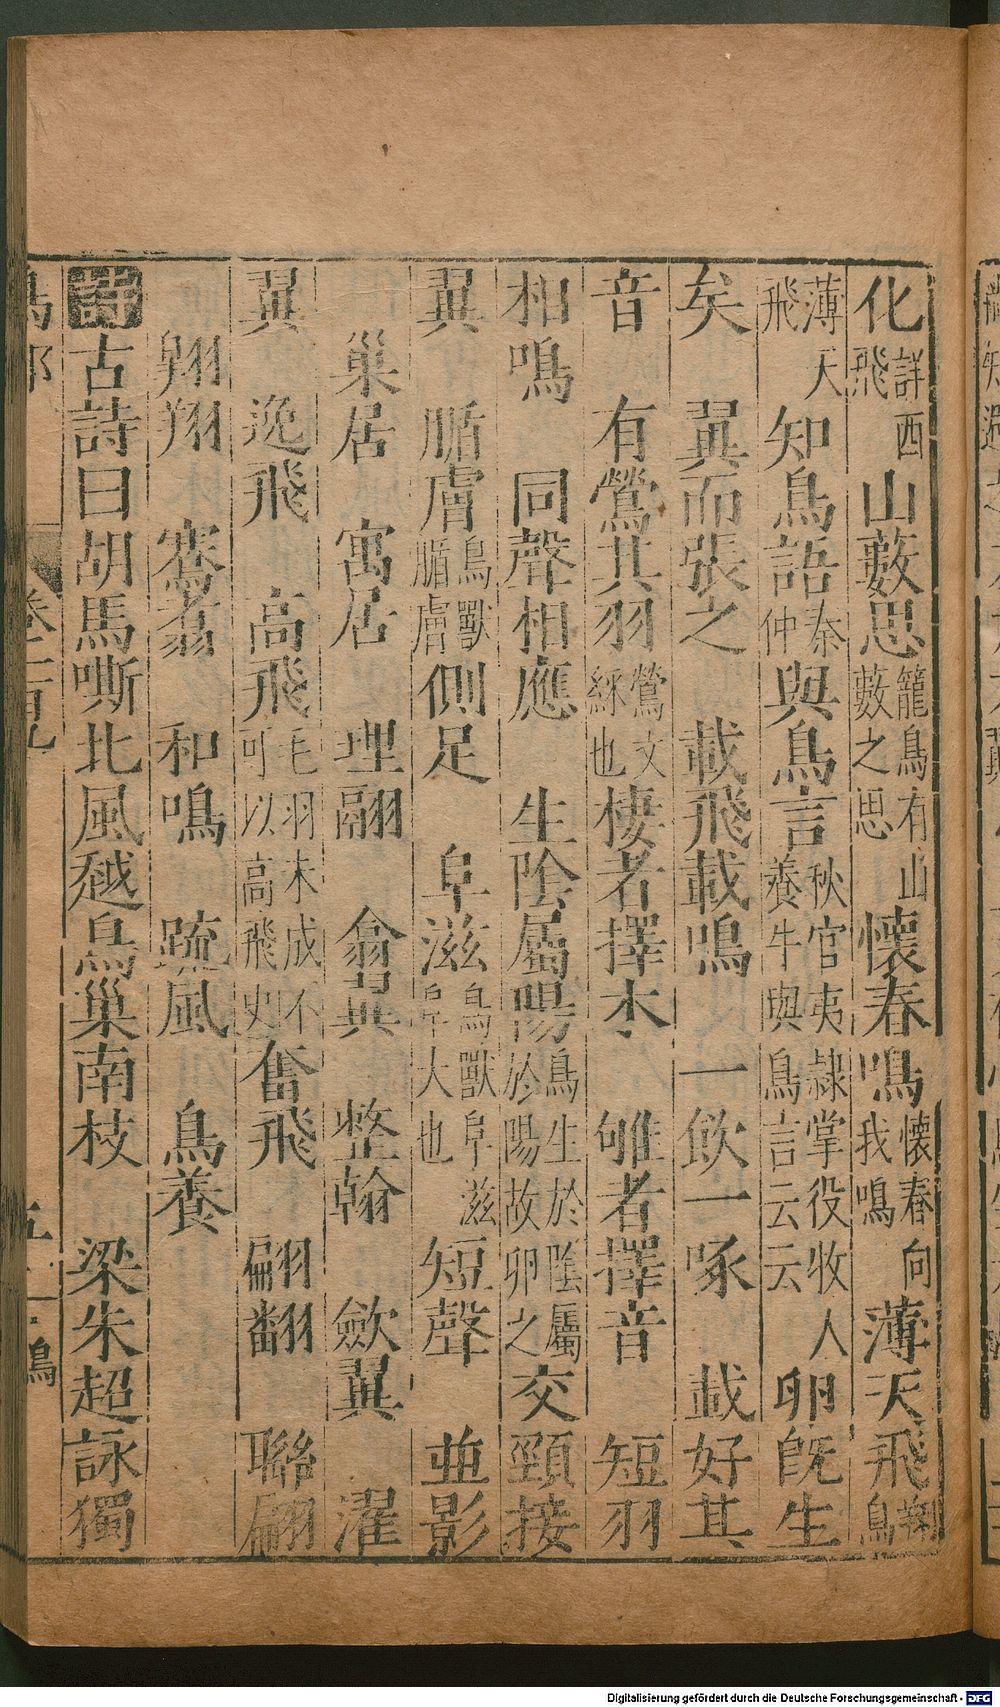 化詳西飛山藪思籠鳥有山藪之思懷春鳴懷春向我鳴薄天飛翔鳥
薄天飛知鳥語秦仲與鳥言秋官夷隸掌役收人養牛與鳥言云云卵旣生
矣翼而張之載飛載鳴一飲一啄載好其
音有鶯其羽鶯文綵也棲者擇木雊者擇音短羽
相鳴同聲相應生陰屬陽鳥生於陰屬於陽故卵之交頸接
翼腯膚鳥獸腯膚側足阜滋鳥獸阜滋阜大也短聲並影
巢居寓居理翮翕翼整翰斂翼濯
翼逸飛高飛毛羽未成不可以高飛史奮飛翩翻聯翩
翱翔騫翥和鳴䟽風鳥養
詩古詩曰胡馬嘶北風越鳥巢南枝梁朱超詠獨
鳥部卷二百九五鳴
Digitalisierung gefördert durch die Deutsche Forschungsgemeinschaft - DFG